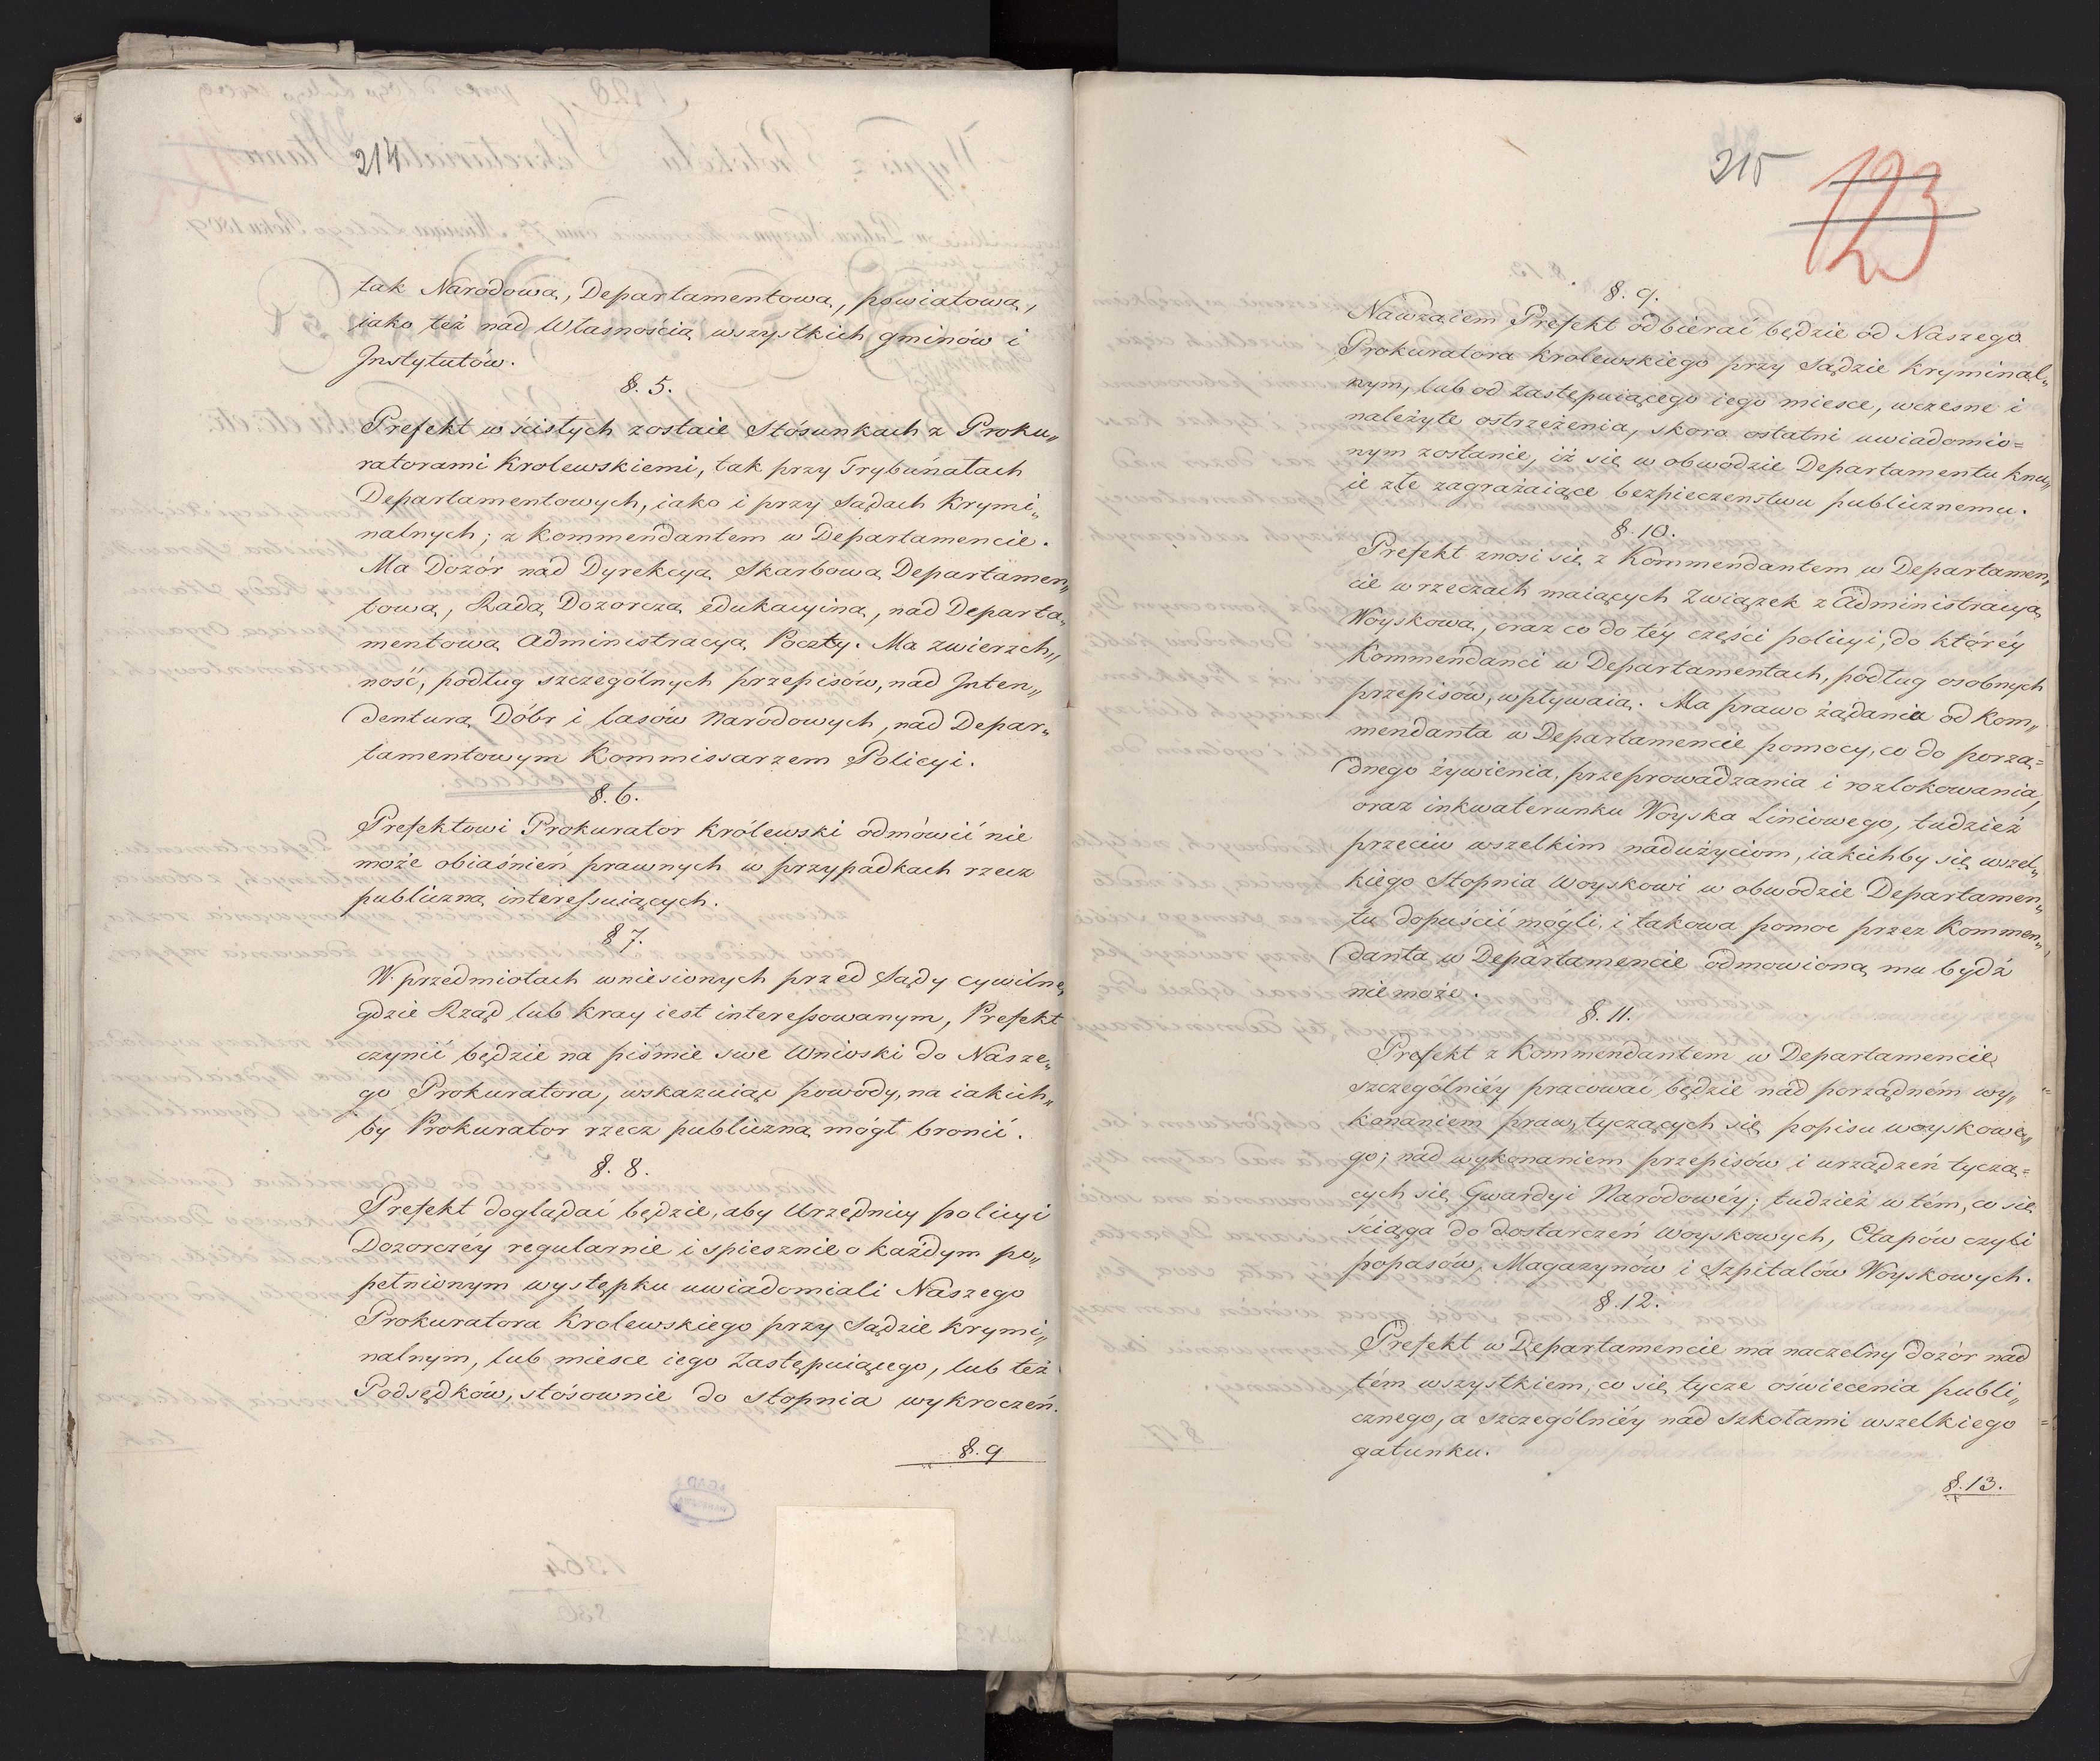 214
tak Narodową, Departamentową, powiatową,
iako też nad Własnością wszystkich gminów i
Instytutów.
§. 5.
Prefekt w ścisłych zostaie Stósunkach z Proku„
ratorami Krolewskiemi, tak przy Trybunałach
Departamentowych, iako i przy Sądach Krymi„
nalnych; z Kommendantem w Departamencie.
Ma Dozór nad Dyrekcyą Skarbową Departamen„
tową, Radą Dozorczą edukacyiną, nad Departa„
mentową Administracyą Poczty. Ma zwierzch„
ność, podług szczególnych przepisów, nad Inten„
denturą Dóbr i lasów Narodowych, nad Depar„
tamentowym Kommissarzem Policyi.
§. 6.
Prefektowi Prokurator Królewski odmówić nie
może obiaśnień prawnych w przypadkach rzecz
publiczną interessuiących.
§ 7.
W przedmiotach wniesionych przed Sądy cywilne,
gdzie Rząd lub kray iest interessowanym, Prefekt
czynić będzie na piśmie swe Wnioski do Nasze„
go Prokuratora, wskazuiąc powody, na iakich„
by Prokurator rzecz publiczną mógł bronić.
§. 8.
Prefekt doglądać będzie, aby Urzędnicy policyi
Dozorczéy regularnie i spiesznie o każdym po„
pełnionym występku uwiadomiali Naszego
Prokuratora Krolewskiego przy Sądzie Krymi„
nalnym, lub miesce iego Zastępuiącego, lub też
Podsędków, stósownie do stopnia wykroczeń.
§. 9
215
123
§. 9.
Nawzaiem Prefekt odbierać będzie od Naszego
Prokuratora Krolewskiego przy Sądzie Kryminal„
nym, lub od Zastępuiącego iego miesce, wczesne i
należyte ostrzeżenia, skoro ostatni uwiadomio=
nym zostanie, iż się w obwodzie Departamentu knu„
ie złe zagrażaiące bezpieczeństwu publicznemu.
§. 10.
Prefekt znosi się z Kommendantem w Departamen„
cie w rzeczach maiących Związek z Administracyą
Woyskową, oraz co do téy części policyi, do któréy
Kommendanci w Departamentach, podług osobnych
przepisów, wpływaią. Ma prawo żądania od Kom„
mendanta w Departamencie pomocy, co do porzą=
dnego żywienia, przeprowadzania i rozlokowania,
oraz inkwaterunku Woyska Liniowego, tudzież
przeciw wszelkim nadużyciom, iakichby się wszel„
kiego Stopnia Woyskowi w obwodzie Departamen„
tu dopuścić mógli, i takowa pomoc przez Kommen„
danta w Departamencie odmowioną mu bydź
nie może.
§. 11.
Prefekt z Kommendantem w Departamencie
szczególniéy pracować będzie nad porządném wy„
konaniem praw, tyczących się popisu woyskowe„
go; nad wykonaniem przepisów i urządzeń tyczą=
cych się Gwardyi Narodowéy; tudzież w tém, co się
ściąga do dostarczeń Woyskowych, Etapów czyli
popasów, Magazynów i Szpitalów Woyskowych.
§. 12.
Prefekt w Departamencie ma naczelny dozór nad
tém wszystkiem, co się tycze oświecenia publi„
cznego, a szczególniéy nad szkołami wszelkiego
gatunku.
§. 13.